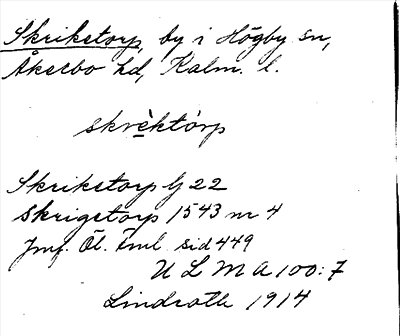 Skrikstorp, by i Högby sn,
Åkerbo hd, Kalm. l.
skrὲktórp
Skrikstorp Lj 22
Skrigstorp 1543 nr 4
Jmf. Öl. Fml. sid 449
U L M A 100:7
Lindroth 1914